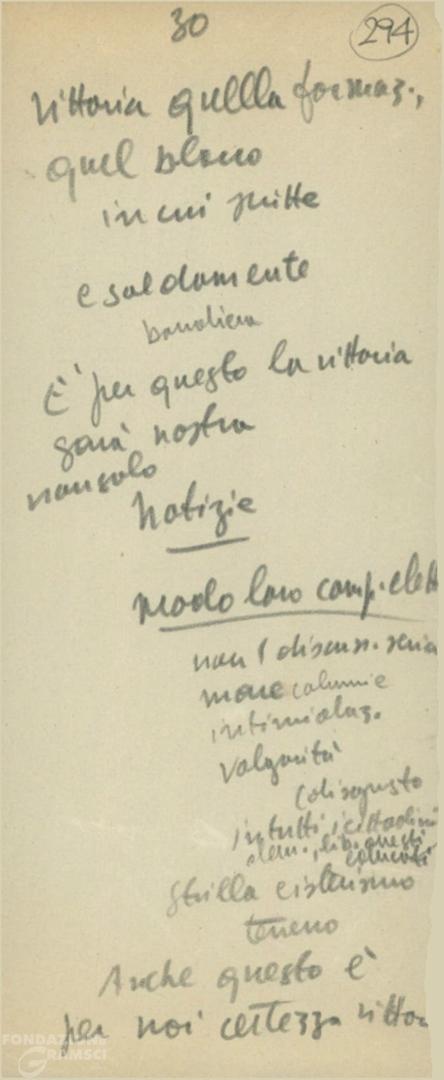 30
294
vittoria quella formaz.,
quel blocco
in cui
e saldamente
bandiera
È per questo la vittoria
sarà nostra
non solo
Notizie
modo loro camp. elett
non 1 discuss. seria
ma calunnie
intimidaz.
volgarità
(disgusto
in tutti i cittadini
dem., lib. onesti
educati
terreno
Anche questo è
per noi certezza vittor
FONDAZIONE
GRAMSCI